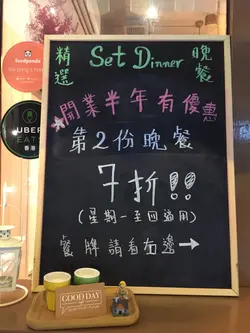 精選 Set Dinner 晚餐
★開業半年有優惠
第2份晚餐
7折!!
(星期一至四適用)
餐牌請看右邊→
foodpanda
UBER
EATS
香港
GOOD DAY